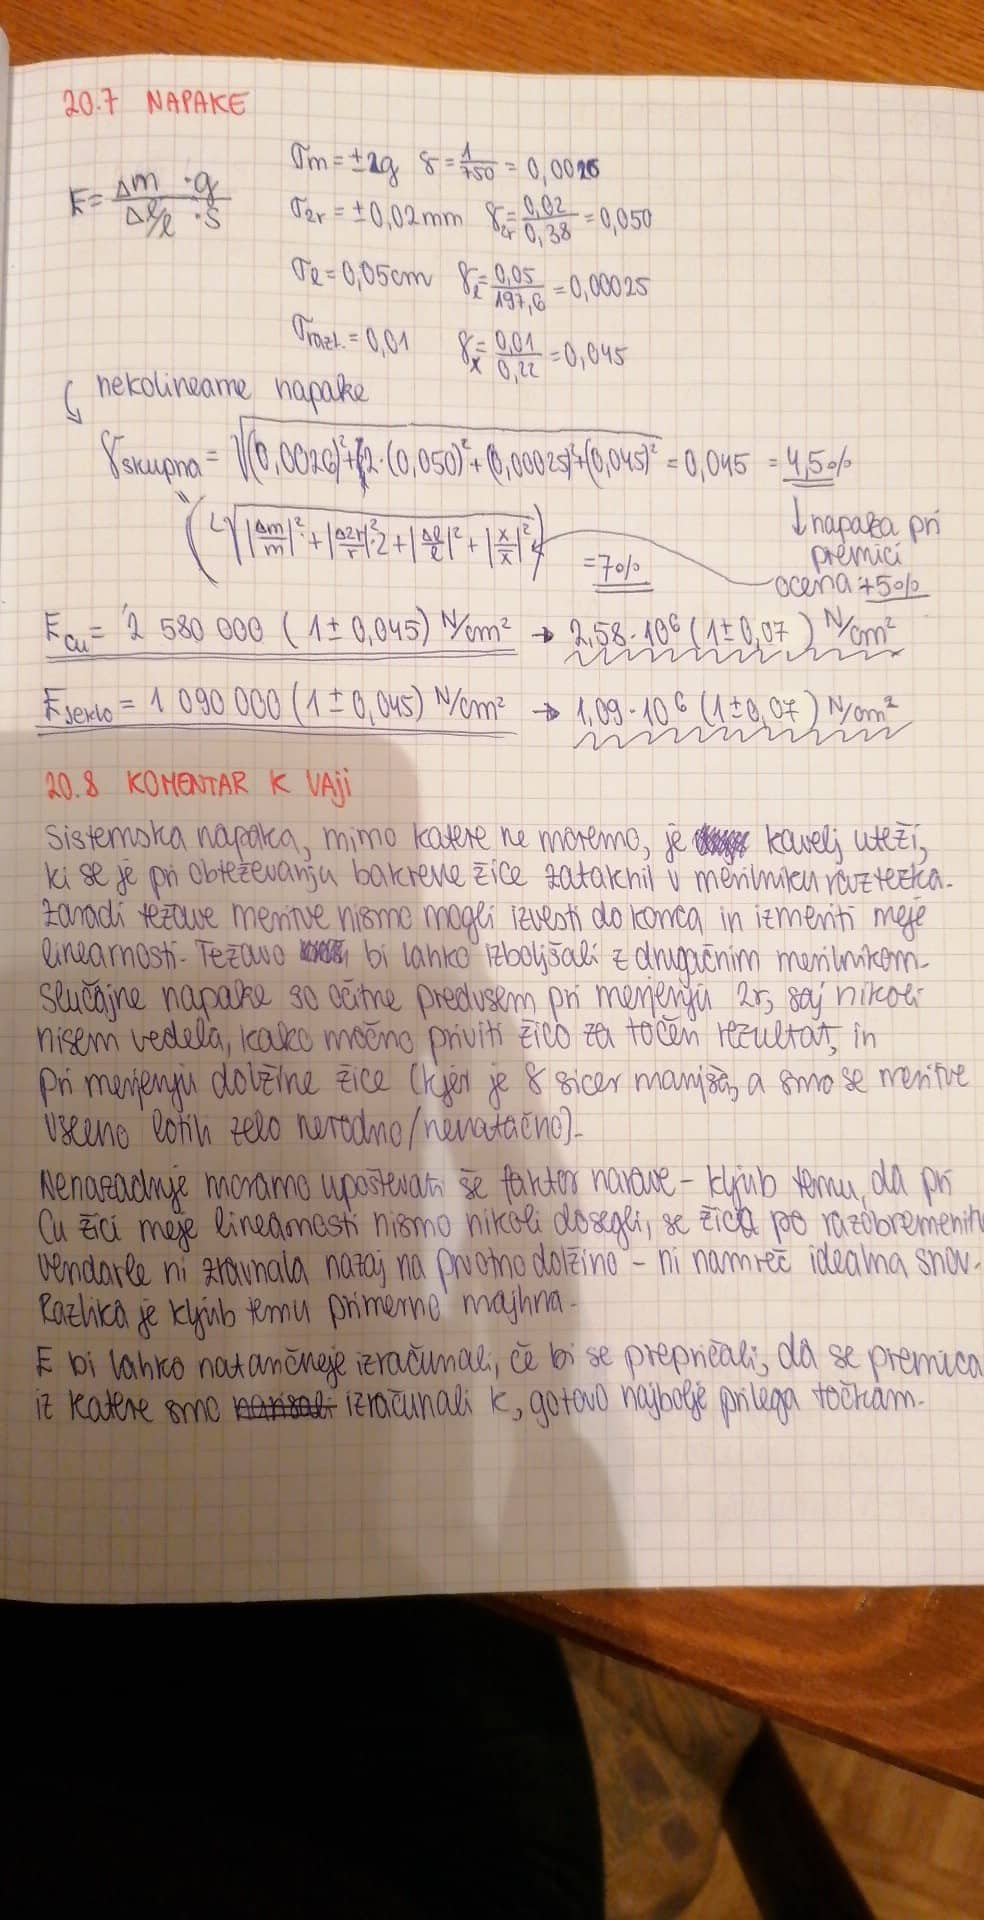 20.7 NAPAKE
E = Δm · g / Δl/l · S
σm = ±2g γ = 1/750 = 0,0026
σ2r = ±0,02mm γ2r = 0,02/0,38 = 0,050
σl = 0,05cm γl = 0,05/197,6 = 0,00025
σrazt. = 0,01 γx = 0,01/0,22 = 0,045
nekolinearne napake
γskupna = √(0,0026)² + (2·(0,050)² + (0,00025)² + (0,045)² = 0,045 = 4,5%
(√|Δm/m|² + |Δ2r/r|²·2 + |Δl/l|² + |x/x|²) = 7%
↓ napaka pri
premici
ocena: +5%
ECu = 2 580 000 (1 ± 0,045) N/cm² → 2,58·10⁶ (1±0,07) N/cm²
Ejeklo = 1 090 000 (1 ± 0,045) N/cm² → 1,09·10⁶ (1±0,07) N/cm²
20.8 KOMENTAR K VAJI
Sistemska napaka, mimo katere ne moremo, je kavelj uteži,
ki se je pri obteževanju bakrene žice zataknil v merilniku raztezka.
Zaradi težave meritve nismo mogli izvesti do konca in izmeriti meje
linearnosti. Težavo bi lahko izboljšali z drugačnim merilnikom.
Slučajne napake so očitne predvsem pri merjenju 2r, saj nikoli
nisem vedela, kako močno priviti žico za točen rezultat, in
pri merjenju dolžine žice (kjer je γ sicer manjša, a smo se meritve
vseeno lotili zelo nerodno/nenatačno).
Nenazadnje moramo upoštevati še faktor narave - kljub temu, da pri
Cu žici meje linearnosti nismo nikoli dosegli, se žica po razobremenitvi
vendarle ni zravnala nazaj na prvotno dolžino - ni namreč idealna snov.
Razlika je kljub temu primerno majhna.
E bi lahko natančneje izračunali, če bi se prepričali, da se premica
iz katere smo narisali izračunali k, gotovo najbolje prilega točkam.